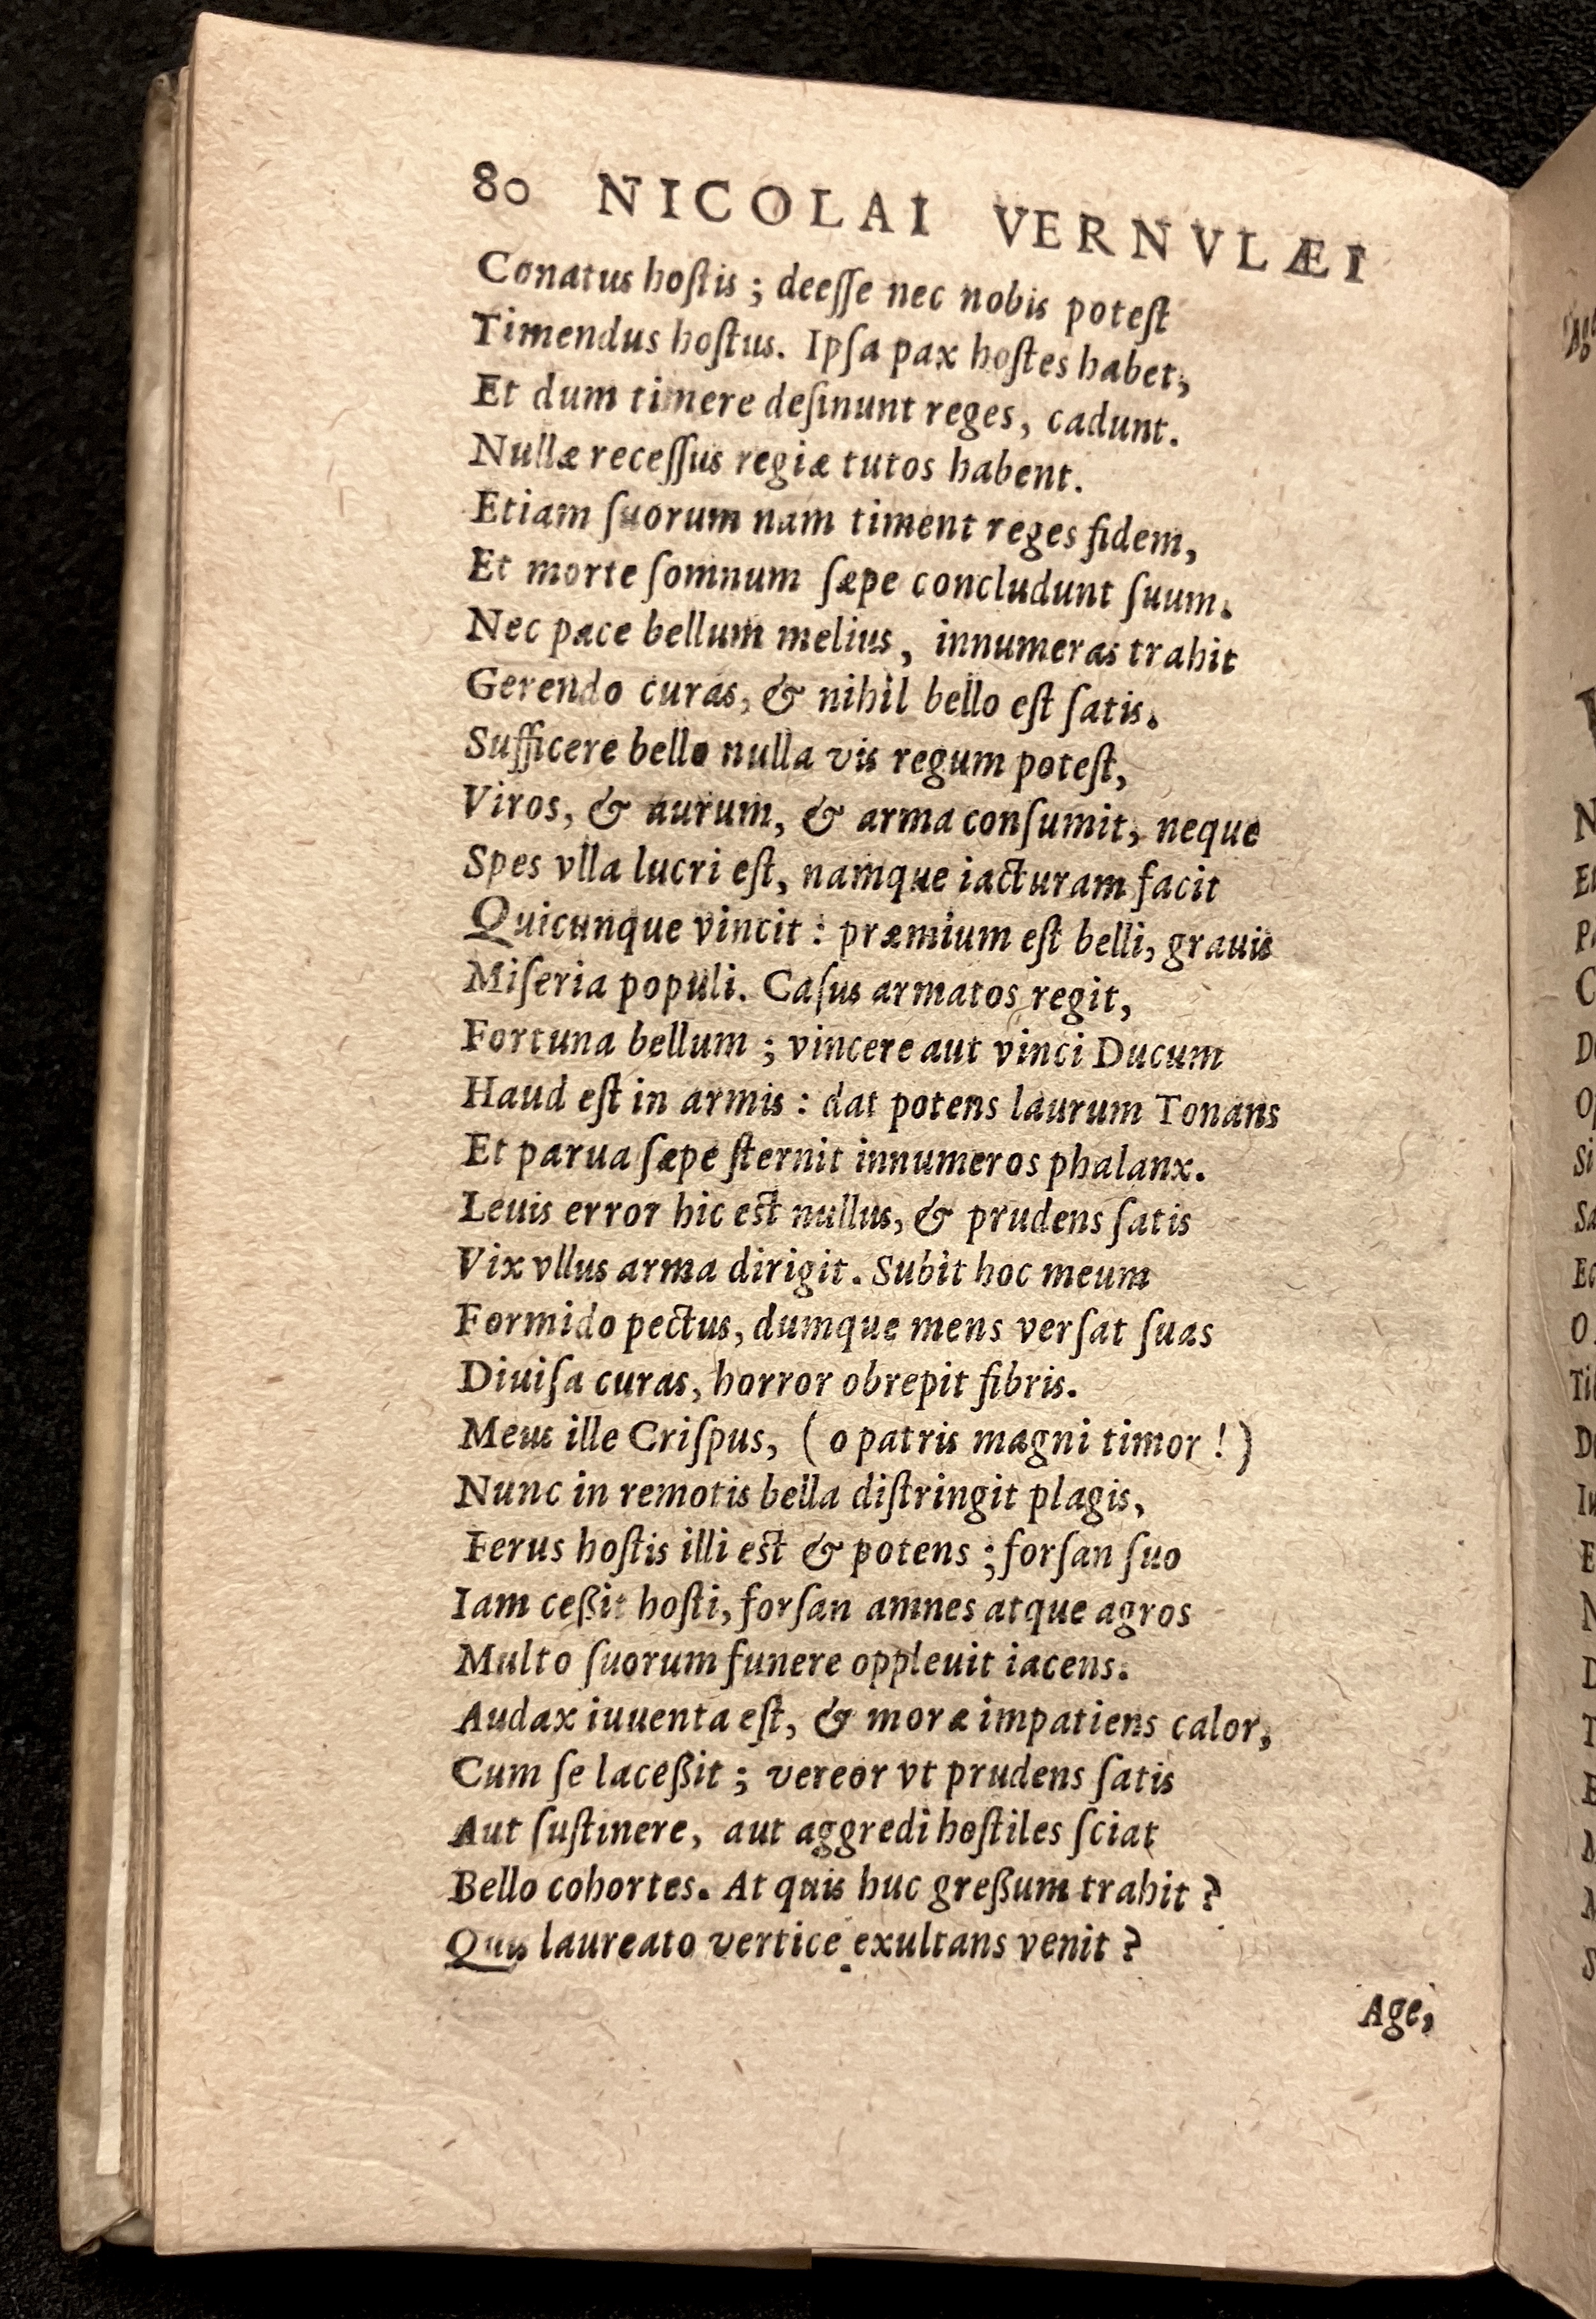 80 NICOLAI VERNVLÆI
Conatus hoſtis ; deeſſe nec nobis poteſt
Timendus hoſtus. Ipſa pax hoſtes habet,
Et dum timere deſinunt reges, cadunt.
Nullæ receſſus regiæ tutos habent.
Etiam ſuorum nam timent reges fidem,
Et morte ſomnum ſæpe concludunt ſuum.
Nec pace bellum melius, innumeras trahit
Gerendo curas, & nihil bello eſt ſatis.
Sufficere bello nulla vis regum poteſt,
Viros, & aurum, & arma conſumit, neque
Spes vlla lucri eſt, namque iacturam facit
Quicunque vincit : præmium eſt belli, grauis
Miſeria populi. Caſus armatos regit,
Fortuna bellum ; vincere aut vinci Ducum
Haud eſt in armis : dat potens laurum Tonans
Et parua ſæpe ſternit innumeros phalanx.
Leuis error hic est nullus, & prudens ſatis
Vix vllus arma dirigit. Subit hoc meum
Formido pectus, dumque mens verſat ſuas
Diuiſa curas, horror obrepit fibris.
Meus ille Criſpus, ( o patris magni timor ! )
Nunc in remotis bella diſtringit plagis,
Ferus hoſtis illi est & potens ; forſan ſuo
Iam ceßit hoſti, forſan amnes atque agros
Multo ſuorum funere oppleuit iacens.
Audax iuuenta eſt, & moræ impatiens calor,
Cum ſe laceßit ; vereor vt prudens ſatis
Aut ſuſtinere, aut aggredi hoſtiles ſciat
Bello cohortes. At quis huc greßum trahit ?
Quis laureato vertice exultans venit ?
Age,